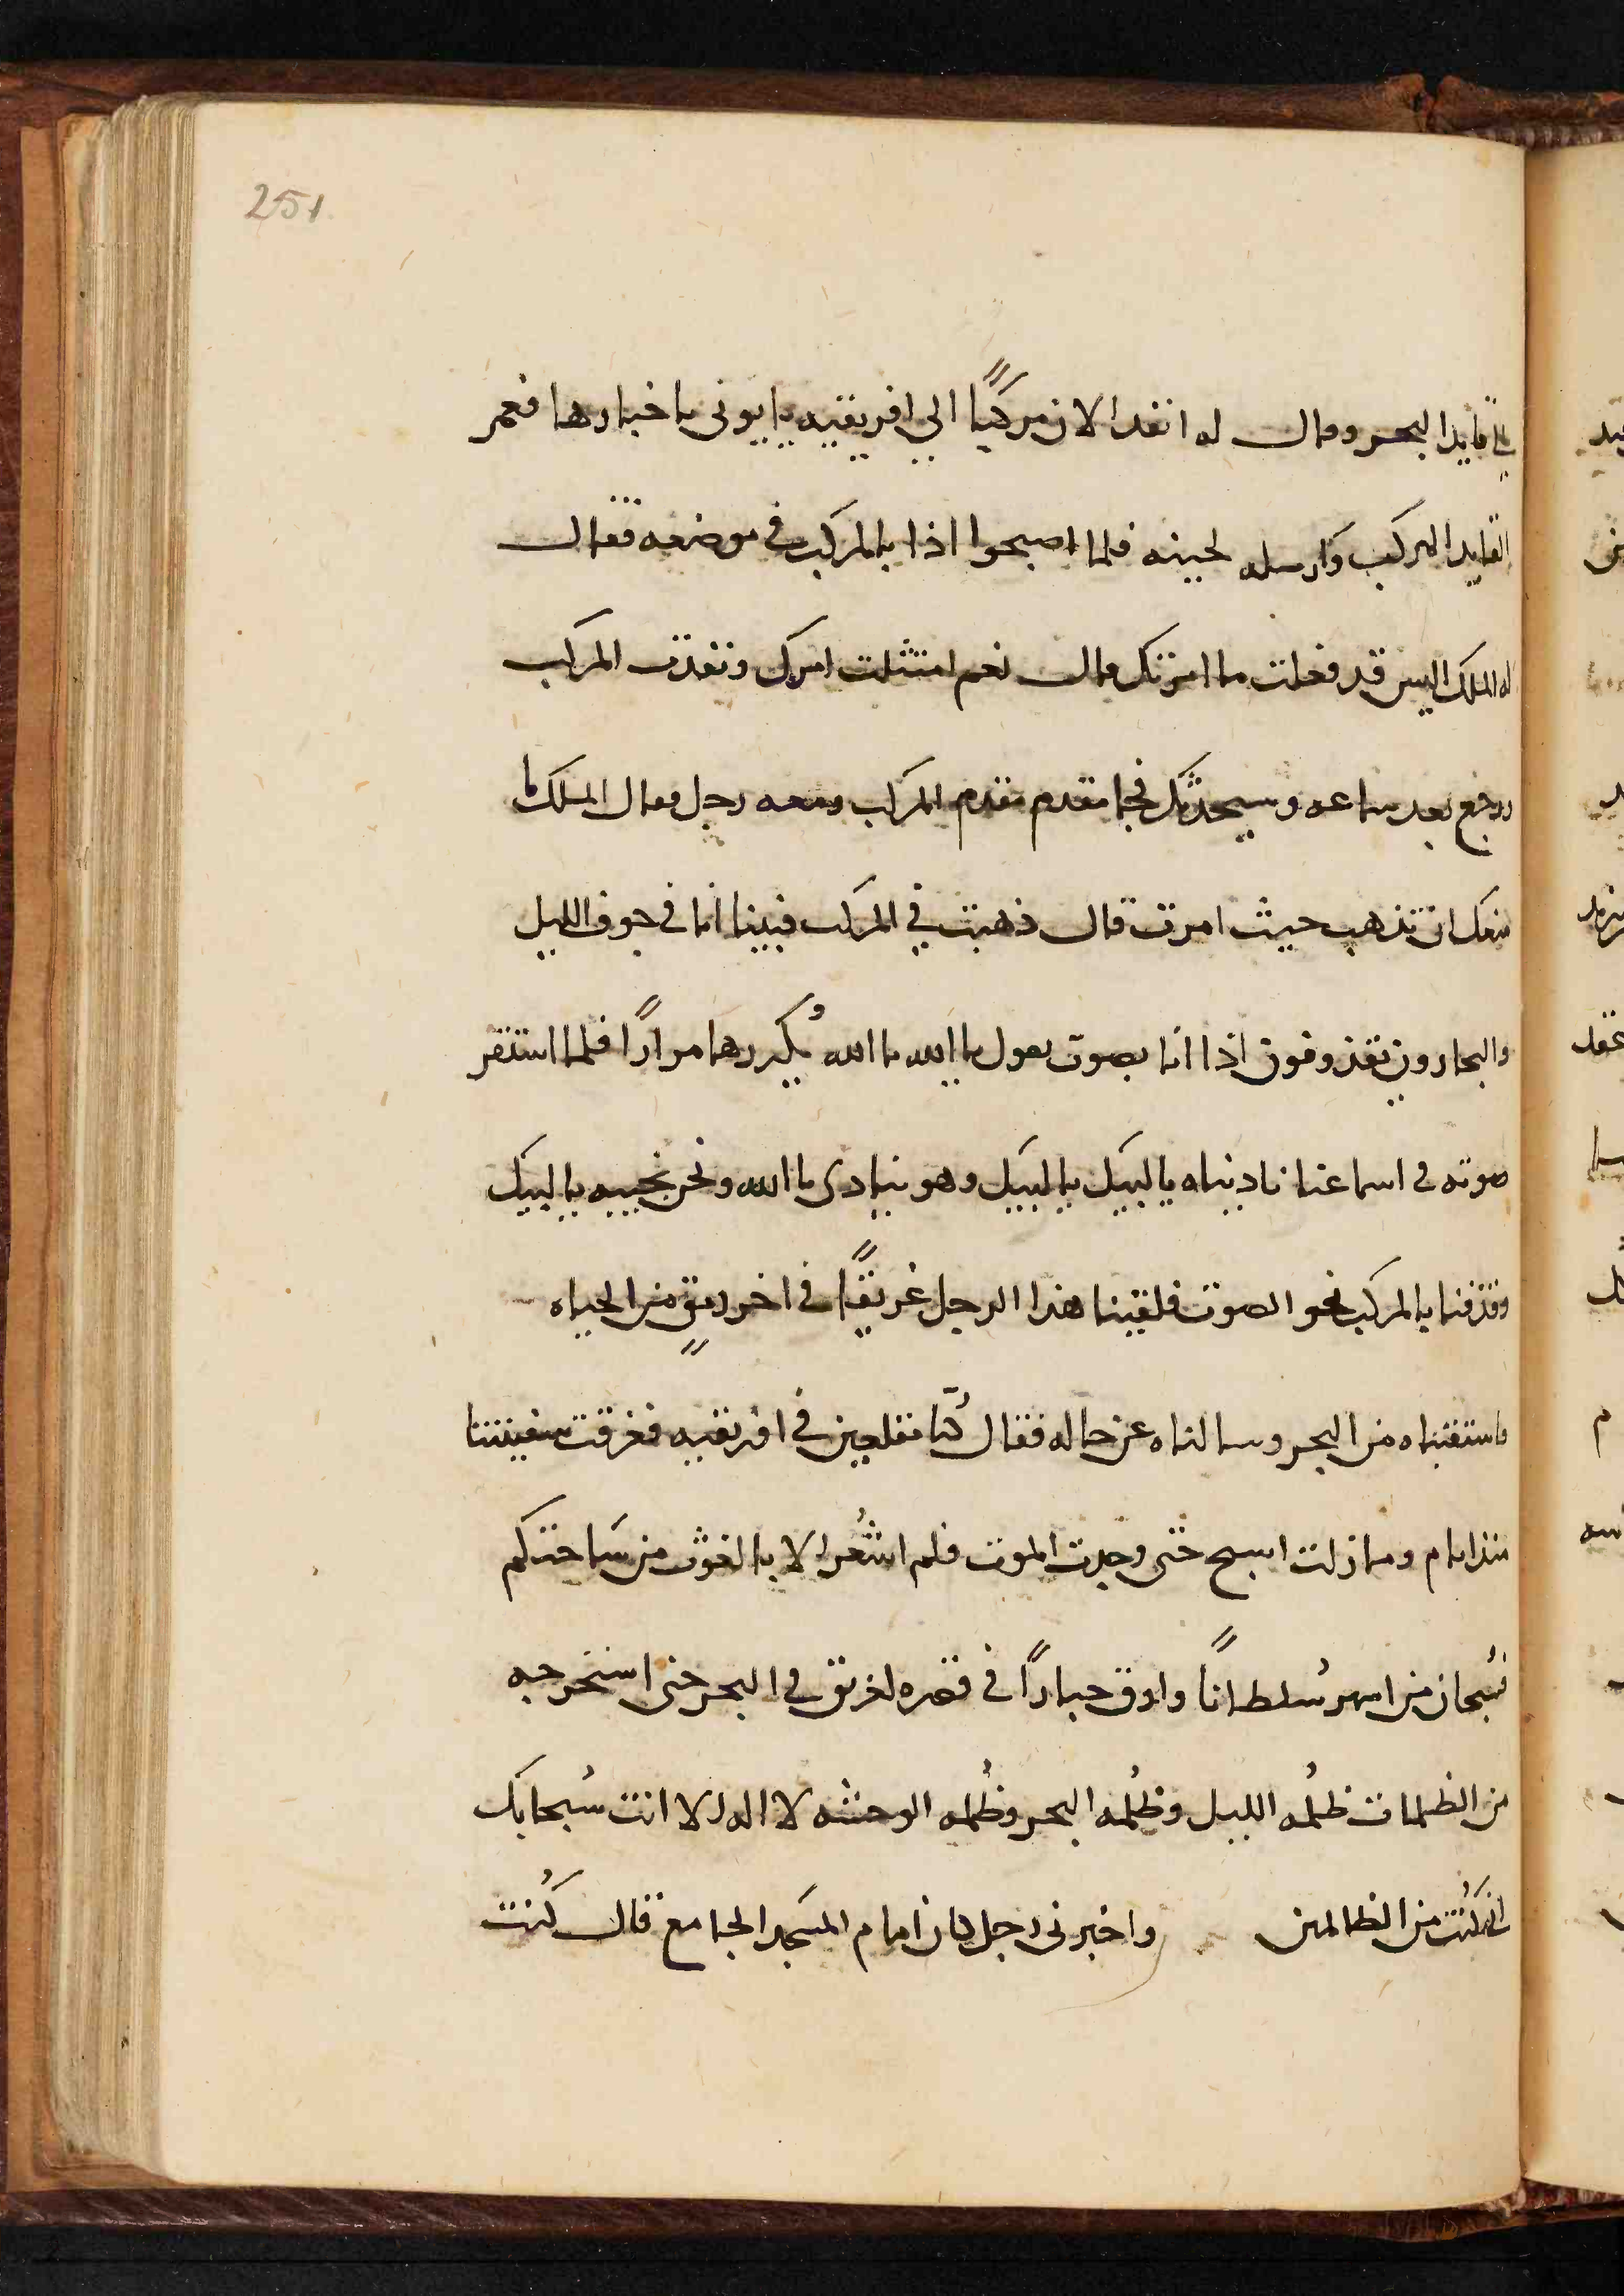 251
قايد البحر وقال له انفد الان مركبًا الي افريقيه ياتوني باخبارها فعمر
القايد المركب وارسله لحينه فلما اصبحوا اذا بالمركب في موضعه فقال
له الملك اليس قد فعلت ما امرتك قال نعم امتثلت امرك ونفذت المركب
ورجع بعد ساعه وسيحدثك فجا مقدم مقدم المركب ومعه رجل فقال الملك ما
منعك ان تذهب حيث امرت قال ذهبت في المركب فبينا انا في جوف الليل
والبحارون يقذفون اذا انا بصوت يقول يا الله يا الله يُكررها مرارًا فلما استقر
صوته في اسماعنا ناديناه يا لبيك يا لبيك وهو ينادى يا الله ونحن نجيبه يا لبيك
وقذفنا بالمركب نحو الصوت فلقينا هذا الرجل غريقًا في اخر رمقٍ من الحياه
فاستقيناه من البحر وسالناه عن حاله فقال كُنّا مقلعين في افريقيه فغرقت سفينتنا
منذ ايام وما زلت اسبح حتى وجدت الموت فلم اشعُر الا بالغوث من سَاحتكم
فسُبحان من اسهر سُلطانًا وارق جبارًا في قصره لغريق في البحر حتى استخرجه
من الظلمات ظُلمه الليل وظُلمه البحر وظُلمه الوحشه لا اله الا انت سُبحانك
اني كُنت من الظالمين واخبرنى رجل كان امام المسجد الجامع قال كُنت